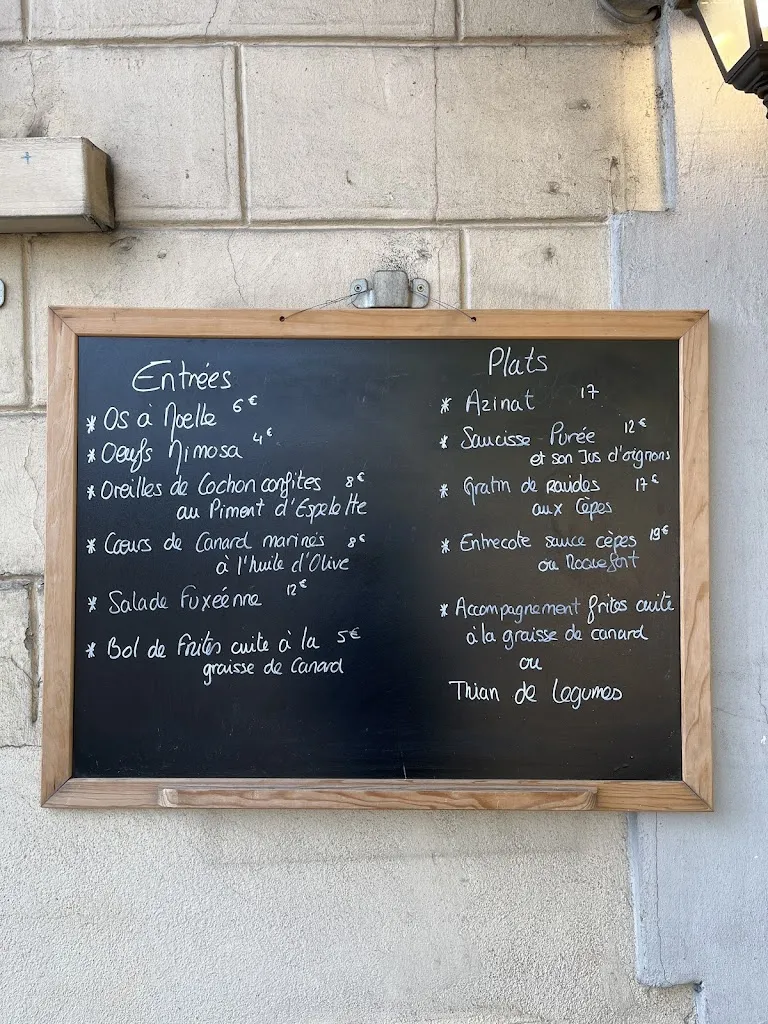 Entrées
* Os a Moelle 6€
* Oeufs Mimosa 4€
* Oreilles de Cochon confites 8€
au Piment d'Espelette
* Cœurs de Canard marinés 8€
à l'huile d'Olive
* Salade Fuxéenne 12€
* Bol de Frites cuite à la 5€
graisse de Canard
Plats
* Azinat 17
* Saucisse Purée 12€
et son Jus d'oignons
* Gratin de ravioles 17€
aux Cèpes
* Entrecote sauce cèpes 19€
ou Roquefort
* Accompagnement frites cuite
à la graisse de canard
ou
Thian de Legumes